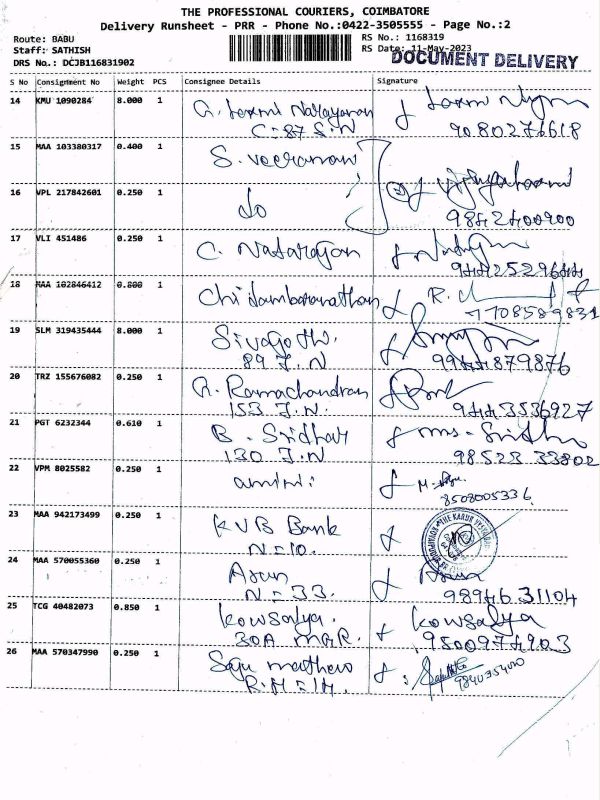 THE PROFESSIONAL COURIERS, COIMBATORE
Delivery Runsheet - PRR - Phone No.:0422-3505555 - Page No.:2
Route: BABU
RS No.: 1168319
Staff: SATHISH
RS Date: 11-May-2023
DOCUMENT DELIVERY
DRS No.: DCJB116831902
S No Consignment No Weight PCS Consignee Details Signature
14 KMU 1090284 8.000 1 G. Laxmi Narayanan
C=87 S.N 9080276618
15 MAA 103380317 0.400 1 S. Veeranan
16 VPL 217842601 0.250 1 do
9842400900
17 VLI 451486 0.250 1 C. Natarajan
18 MAA 102846412 0.800 1 Chidambaranathan R.
7708589831
19 SLM 319435444 8.000 1
89 J.N 9944879876
20 TRZ 155676082 0.250 1 Ramachandran
153 J.N. 9443536927
21 PGT 6232344 0.610 1 B. Sridhar ms. Sridhar
130 J.N 98523 33802
22 VPM 8025582 0.250 1
8508005336
23 MAA 942173499 0.250 1 KVB Bank
N=10.
24 MAA 570055360 0.250 1 Arun Arun
N=33. 98946 31104
25 TCG 40482073 0.850 1 Kowsalya Kowsalya
30A MGR. 9500974903
26 MAA 570347990 0.250 1 Saju mathew
R.M=14.